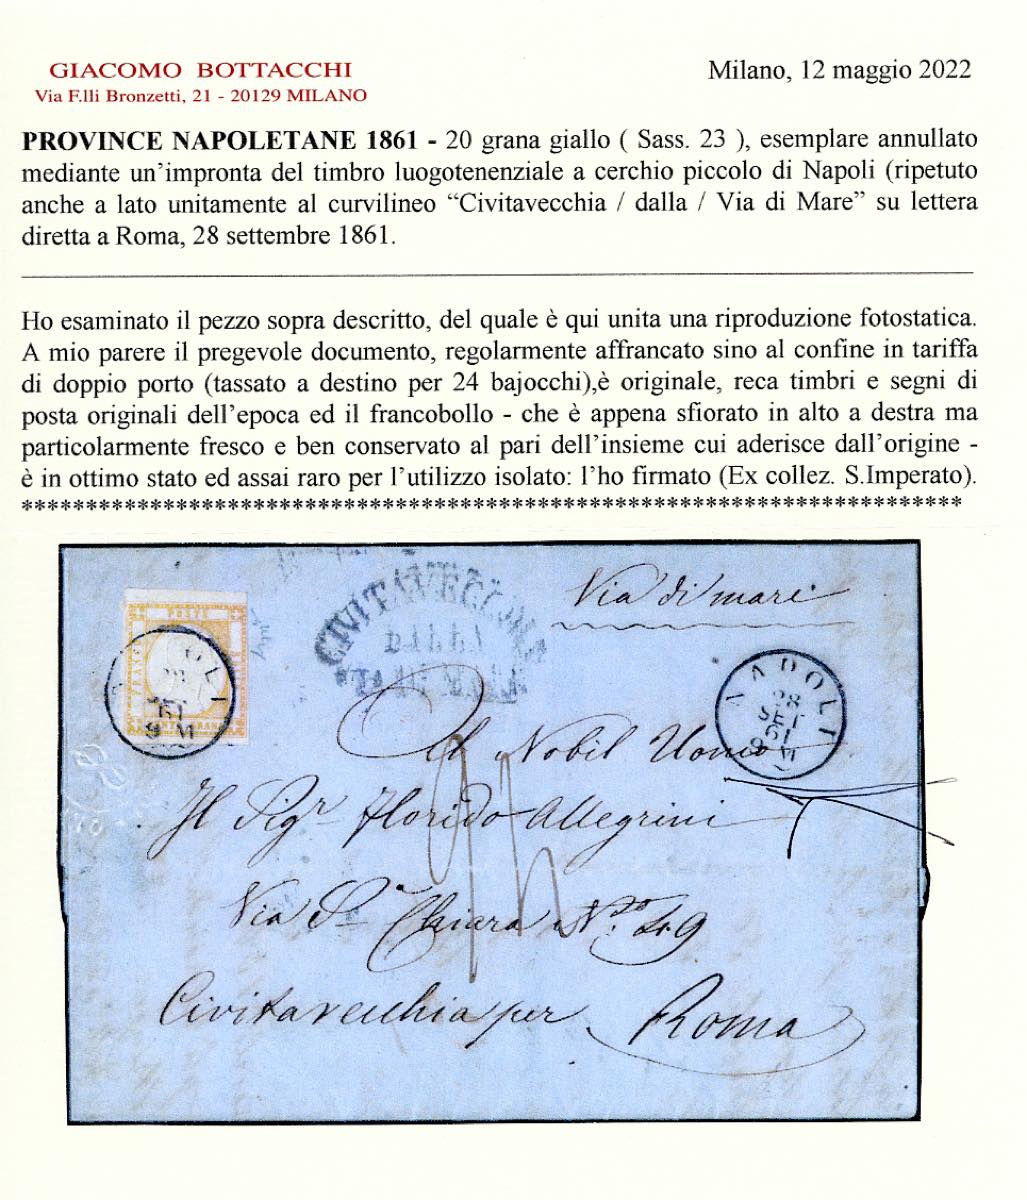 GIACOMO BOTTACCHI
Via F.lli Bronzetti, 21 - 20129 MILANO
Milano, 12 maggio 2022
PROVINCE NAPOLETANE 1861 - 20 grana giallo ( Sass. 23 ), esemplare annullato
mediante un'impronta del timbro luogotenenziale a cerchio piccolo di Napoli (ripetuto
anche a lato unitamente al curvilineo “Civitavecchia / dalla / Via di Mare” su lettera
diretta a Roma, 28 settembre 1861.
Ho esaminato il pezzo sopra descritto, del quale è qui unita una riproduzione fotostatica.
A mio parere il pregevole documento, regolarmente affrancato sino al confine in tariffa
di doppio porto (tassato a destino per 24 bajocchi),è originale, reca timbri e segni di
posta originali dell'epoca ed il francobollo - che è appena sfiorato in alto a destra ma
particolarmente fresco e ben conservato al pari dell'insieme cui aderisce dall'origine -
è in ottimo stato ed assai raro per l'utilizzo isolato: l'ho firmato (Ex collez. S.Imperato).
**************************************************************************
Via di mare
CIVITAVECCHIA
DALLA
POSTE
NAPOLI
28
SET
Al Nobil Uomo
Il Sigr Florido Allegrini
Via Sta Chiara No. 49
Civitavecchia per Roma